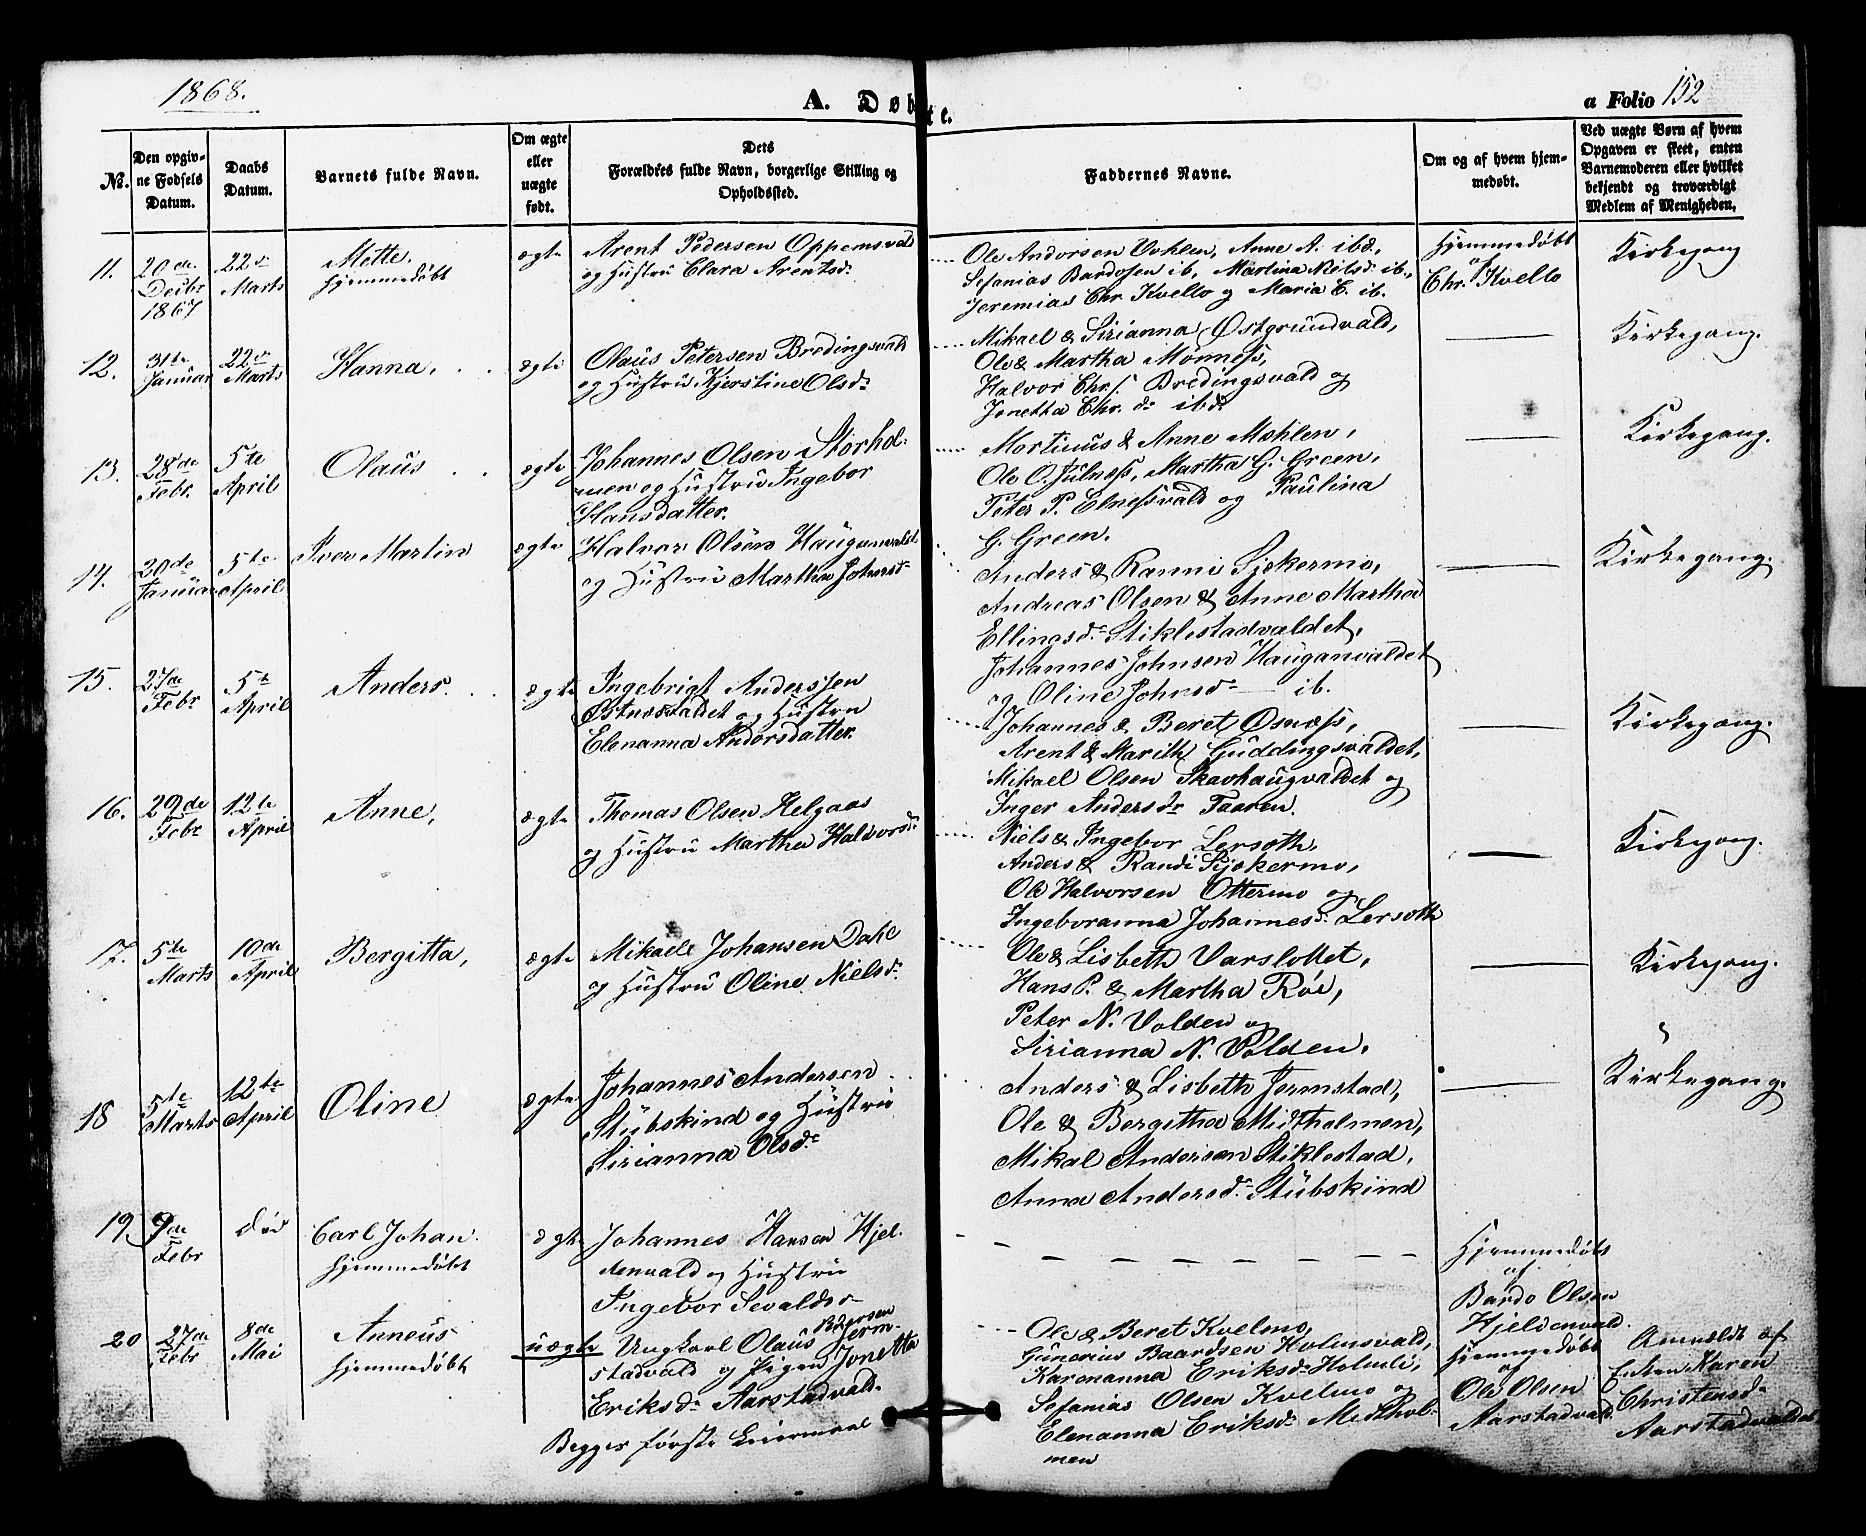 1868.
A. Døbte.
a Folio 152
№.
Den opgiv-
ne Fødsels
Datum.
Daabs
Datum.
Barnets fulde Navn.
Om ægte
eller
uægte
født.
Dets
Forældres fulde Navn, borgerlige Stilling og
Opholdssted.
Faddernes Navne.
Om og af hvem hjem-
medøbt.
Ved uægte Børn af hvem
Opgaven er skeet, enten
Barnemoderen eller hvilket
bekjendt og troværdigt
Medlem af Menigheden.
11.
20de
Decbr
1867
22de
Marts
Mette.
hjemmedøbt
ægte
Arent Pedersen Oppemsvald
og Hustru Clara Arentsd.
Ole Andersen Vohlen, Anne A. ibd.,
Sefanias Bardosen ib, Martina Nielsd. ib.,
Jeremias Chr. Kvello og Maria C. ib.
Hjemmedøbt
af
Chr. Kvello
Kirkegang
12.
31te
Januar
22de
Marts
Hanna,
ægte
Olaus Petersen Bredingsvald
og Hustru Kjerstine Olsd.
Mikael & Sirianna Østgrundvald,
Ole & Martha Monness,
Halvor Chrs. Bredingsvald og
Jonetta Chr.d. ibd.
Kirkegang.
13.
28de
Febr.
5te
April
Olaus
ægte
Johannes Olsen Storhol-
men og Hustru Ingebor
Hansdatter.
Mortinus & Anne Mæhlen,
Ole O. Julness, Martha G. Green,
Peter P. Elnessvald og Paulina
G. Green.
Kirkegang.
14.
20de
Januar
5te
April
Iver Martin
ægte
Halvor Olsen Hauganvaldet
og Hustru Martha Johnsd.
Anders & Ranni Sjøkermo,
Andreas Olsen & Anne Martha
Ellingsd. Stiklestadvaldet,
Johannes Johnsen Hauganvaldet
og Oline Johnsd. ib.
Kirkegang.
15.
27de
Febr
5te
April
Anders
ægte
Ingebrigt Anderssen
Østnesvaldet og Hustru
Elenanna Andersdatter.
Johannes & Beret Øsness,
Arent & Marith Guddingsvaldet,
Mikael Olsen Skavhaugvaldet og
Inger Andersdr Taaren.
Kirkegang.
16.
29de
Febr
12te
April
Anne,
ægte
Thomas Olsen Helgaas
og Hustru Martha Halvorsd.
Niels & Ingebor Lersoth,
Anders & Randi Sjøkermo,
Ole Halvorsen Ottermo og
Ingeboranna Johannesd. Lersoth
Kirkegang.
17.
5te
Marts
10de
April
Bergitta,
ægte
Mikael Johansen Dahl
og Hustru Oline Nielsd.
Ole & Lisbeth Varslottet,
Hans P. & Martha Røe,
Peter N. Volden og
Sirianna N. Volden.
Kirkegang.
18
5te
Marts
12te
April
Oline
ægte
Johannes Andersen
Stubskind og Hustru
Sirianna Olsd.
Anders & Lisbeth Jermstad,
Ole & Bergitha Midtholmen,
Mikal Andersen Stiklestad,
Anna Andersd. Stubskind
Kirkegang.
19.
9de
Febr
død
Carl Johan
hjemmedøbt
ægte
Johannes Hansen Hjel-
denvald og Hustru
Ingebor Sevaldsd
Hjemmedøbt
af
Bardo Olsen
Hjeldenvald.
20
27de
Febr
8de
Mai
Anneus
hjemmedøbt
uægte
Ungkarl Olaus Pedersen Jerm-
stadvald og Pigen Jonetta
Eriksd. Aarstadvald.
Begges første Leiermaal
Ole & Beret Kvelmo,
Gunerius Baardsen Holmsvald,
Karenanna Eriksd. Holmli,
Sefanias Olsen Kvelmo og
Elenanna Eriksd. Midthol-
men
Hjemmedøbt
af
Ole Olsen
Aarstadvald.
Anmeldt af
Enken Karen
Christensd.
Aarstadvaldet